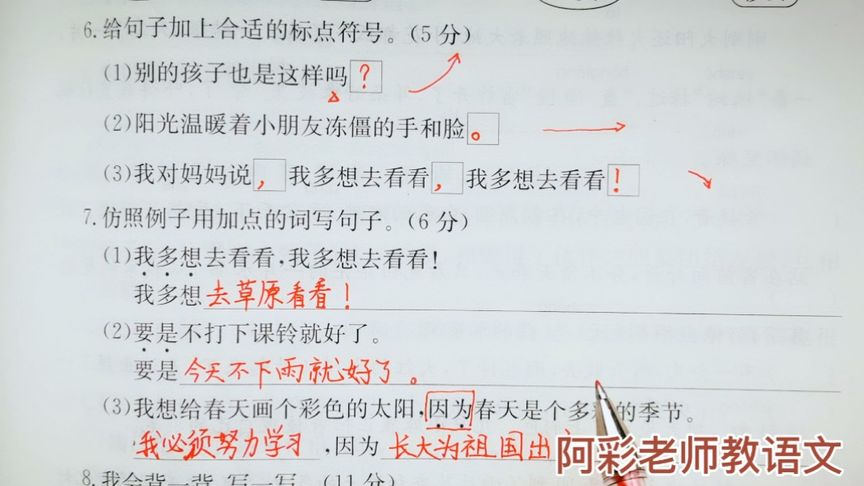 6.给句子加上合适的标点符号。(5分)
(1)别的孩子也是这样吗？
(2)阳光温暖着小朋友冻僵的手和脸。
(3)我对妈妈说，我多想去看看，我多想去看看！
7.仿照例子用加点的词写句子。(6分)
(1)我多想去看看,我多想去看看!
我多想去草原看看！
(2)要是不打下课铃就好了。
要是今天不下雨就好了。
(3)我想给春天画个彩色的太阳,因为春天是个多的季节。
我必须努力学习,因为长大为祖国出
阿彩老师教语文
8.我会背一背,写一写。(11分)